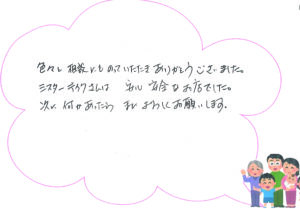 色々と相談にものっていただきありがとうございました。
ミスターデイクさんは 安心 安全なお店でした。
次に何かあったら またよろしくお願いします。